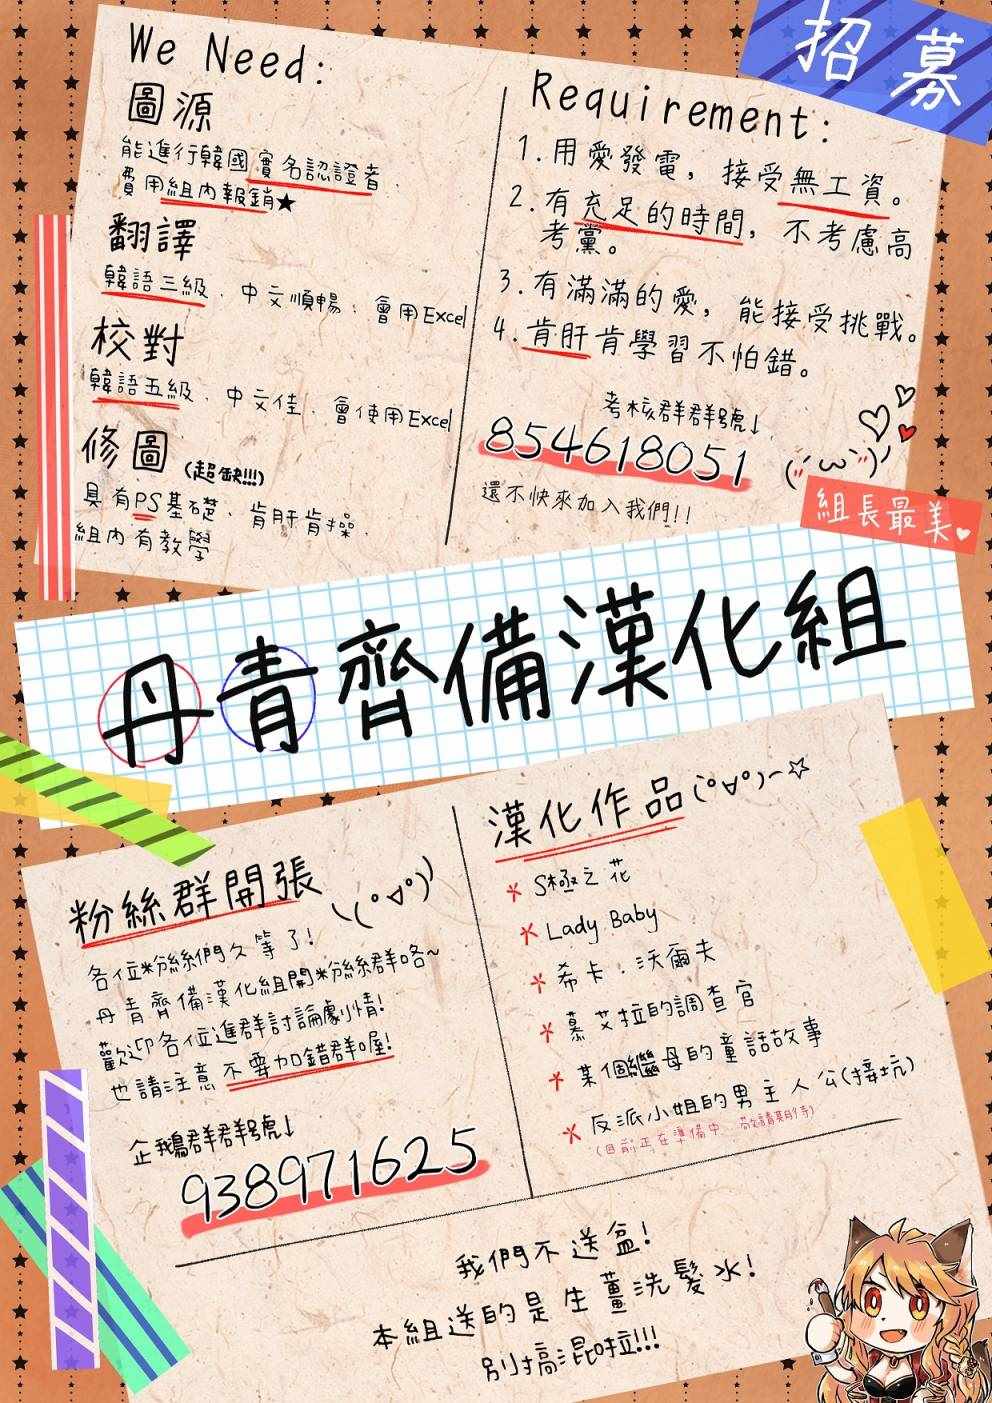 招募
We Need:
圖源
能進行韓國實名認證者.
費用組內報銷★
翻譯
韓語三級、中文順暢、會用Excel
校對
韓語五級、中文佳、會使用Excel
修圖(超缺!!!)
具有PS基礎、肯肝肯操.
組內有教學
Requirement:
1.用愛發電，接受無工資。
2.有充足的時間，不考慮高
考黨。
3.有滿滿的愛，能接受挑戰。
4.肯肝肯學習不怕錯。
考核群群號↓
854618051
還不快來加入我們!!
組長最美♥
丹青齊備漢化組
粉絲群開張
各位粉絲們久等了!
丹青齊備漢化組開粉絲群咯~
歡迎各位進群討論劇情!
也請注意不要加錯群喔!
企鵝群群號↓
938971625
漢化作品(°∀°)~☆
* S極之花
* Lady Baby
* 希卡·沃爾夫
* 慕艾拉的調查官
* 某個繼母的童話故事
* 反派小姐的男主人公(接坑)
(目前正在準備中、敬請期待)
我們不送盆!
本組送的是生薑洗髮水!
別搞混啦!!!